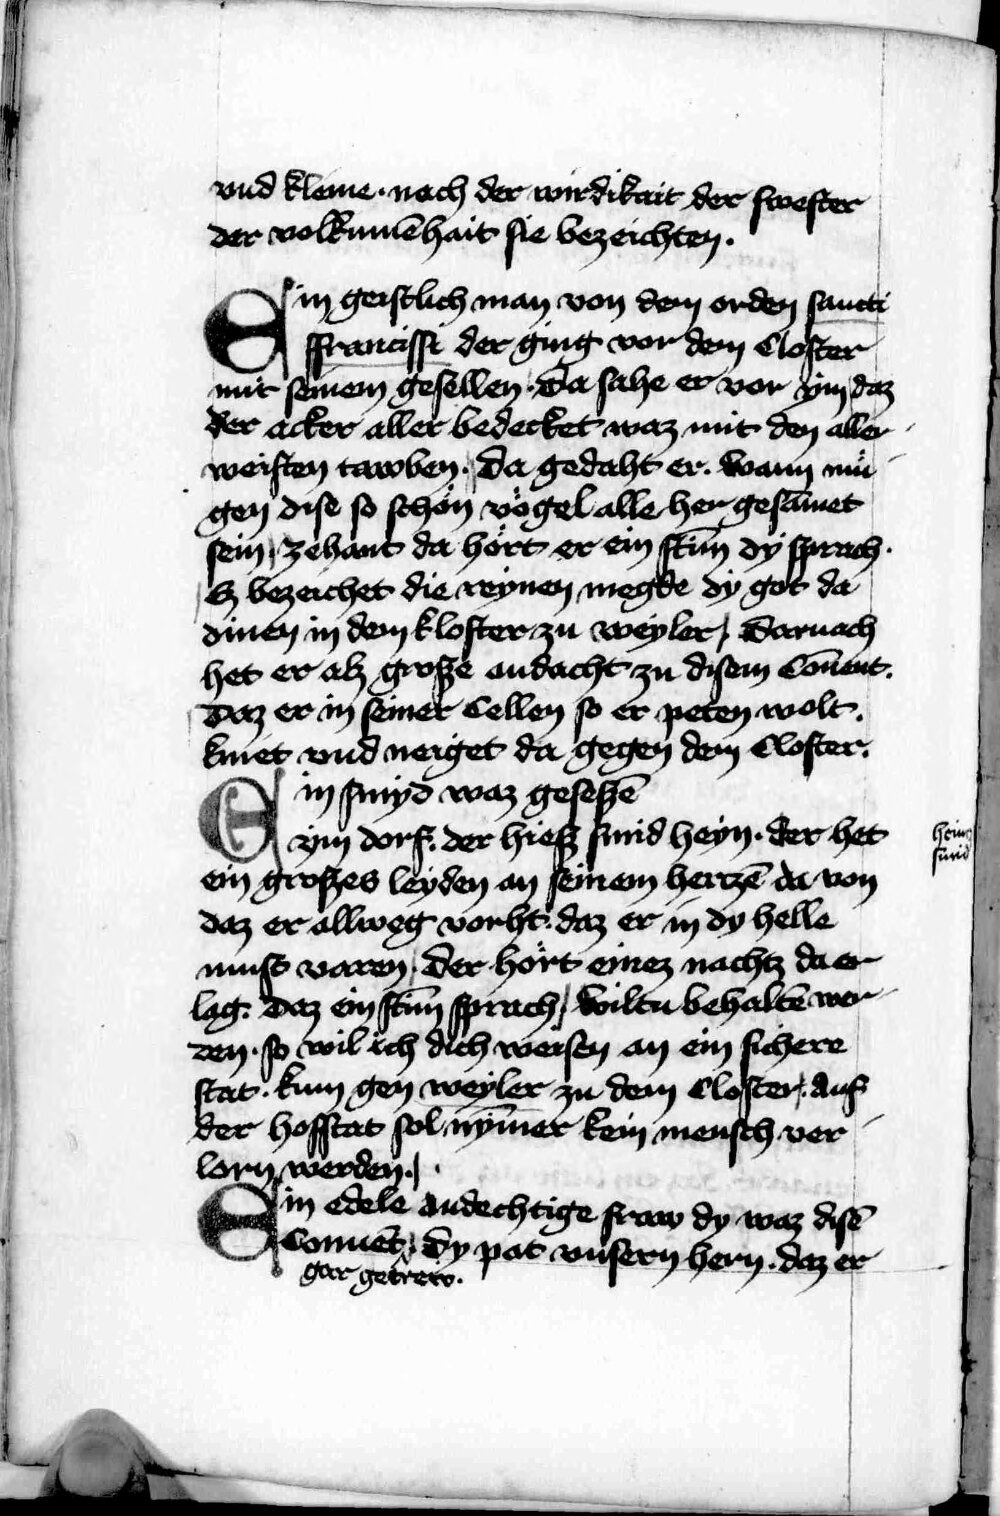 vnd kleine · nach der wirdikait der swester
der volkumēhait sie bezeichten.
Ein geistlich man von dem orden sancti
ffrancissi der ging vor dem Closter
mit seinem gesellen · Da sahe er vor ÿm daz
der acker aller bedecket waz mit den aller
weisten tawben · Da gedaht er. wann mü
gen dise so schön vögel alle her gesāmet
sein, zehant da hört er ein stīm dy sprach ·
Ez bezeichet die reynen megde dy got da
dinen in dem kloster zu weyler, Darnach
het er alz grosze andacht zu disem Cōuent.
Daz er in seiner Cellen so er peten wolt.
kniet vnd neiget da gegen dem Closter.
Ein smyd waz geseszē
ym dorf. der hiesz smid heyn · der het
ein groszes leyden an seinem hertzē da von
daz er allweg vorht. daz er in dy helle
must varen, Der hört einez nachtz da er
lag. Daz ein stīm sprach, wiltu behaltē wer
den · so wil ich dich weisen an ein sichere
stat · kum gen weyler zu dem Closter, Auf
der hofstat sol nȳmer kein mensch ver
lorn werden,
Ein edele andechtige fraw dy waz disē
Conuēt, Dy pat vnsern hern. daz er
gar getrew.
heins
smid